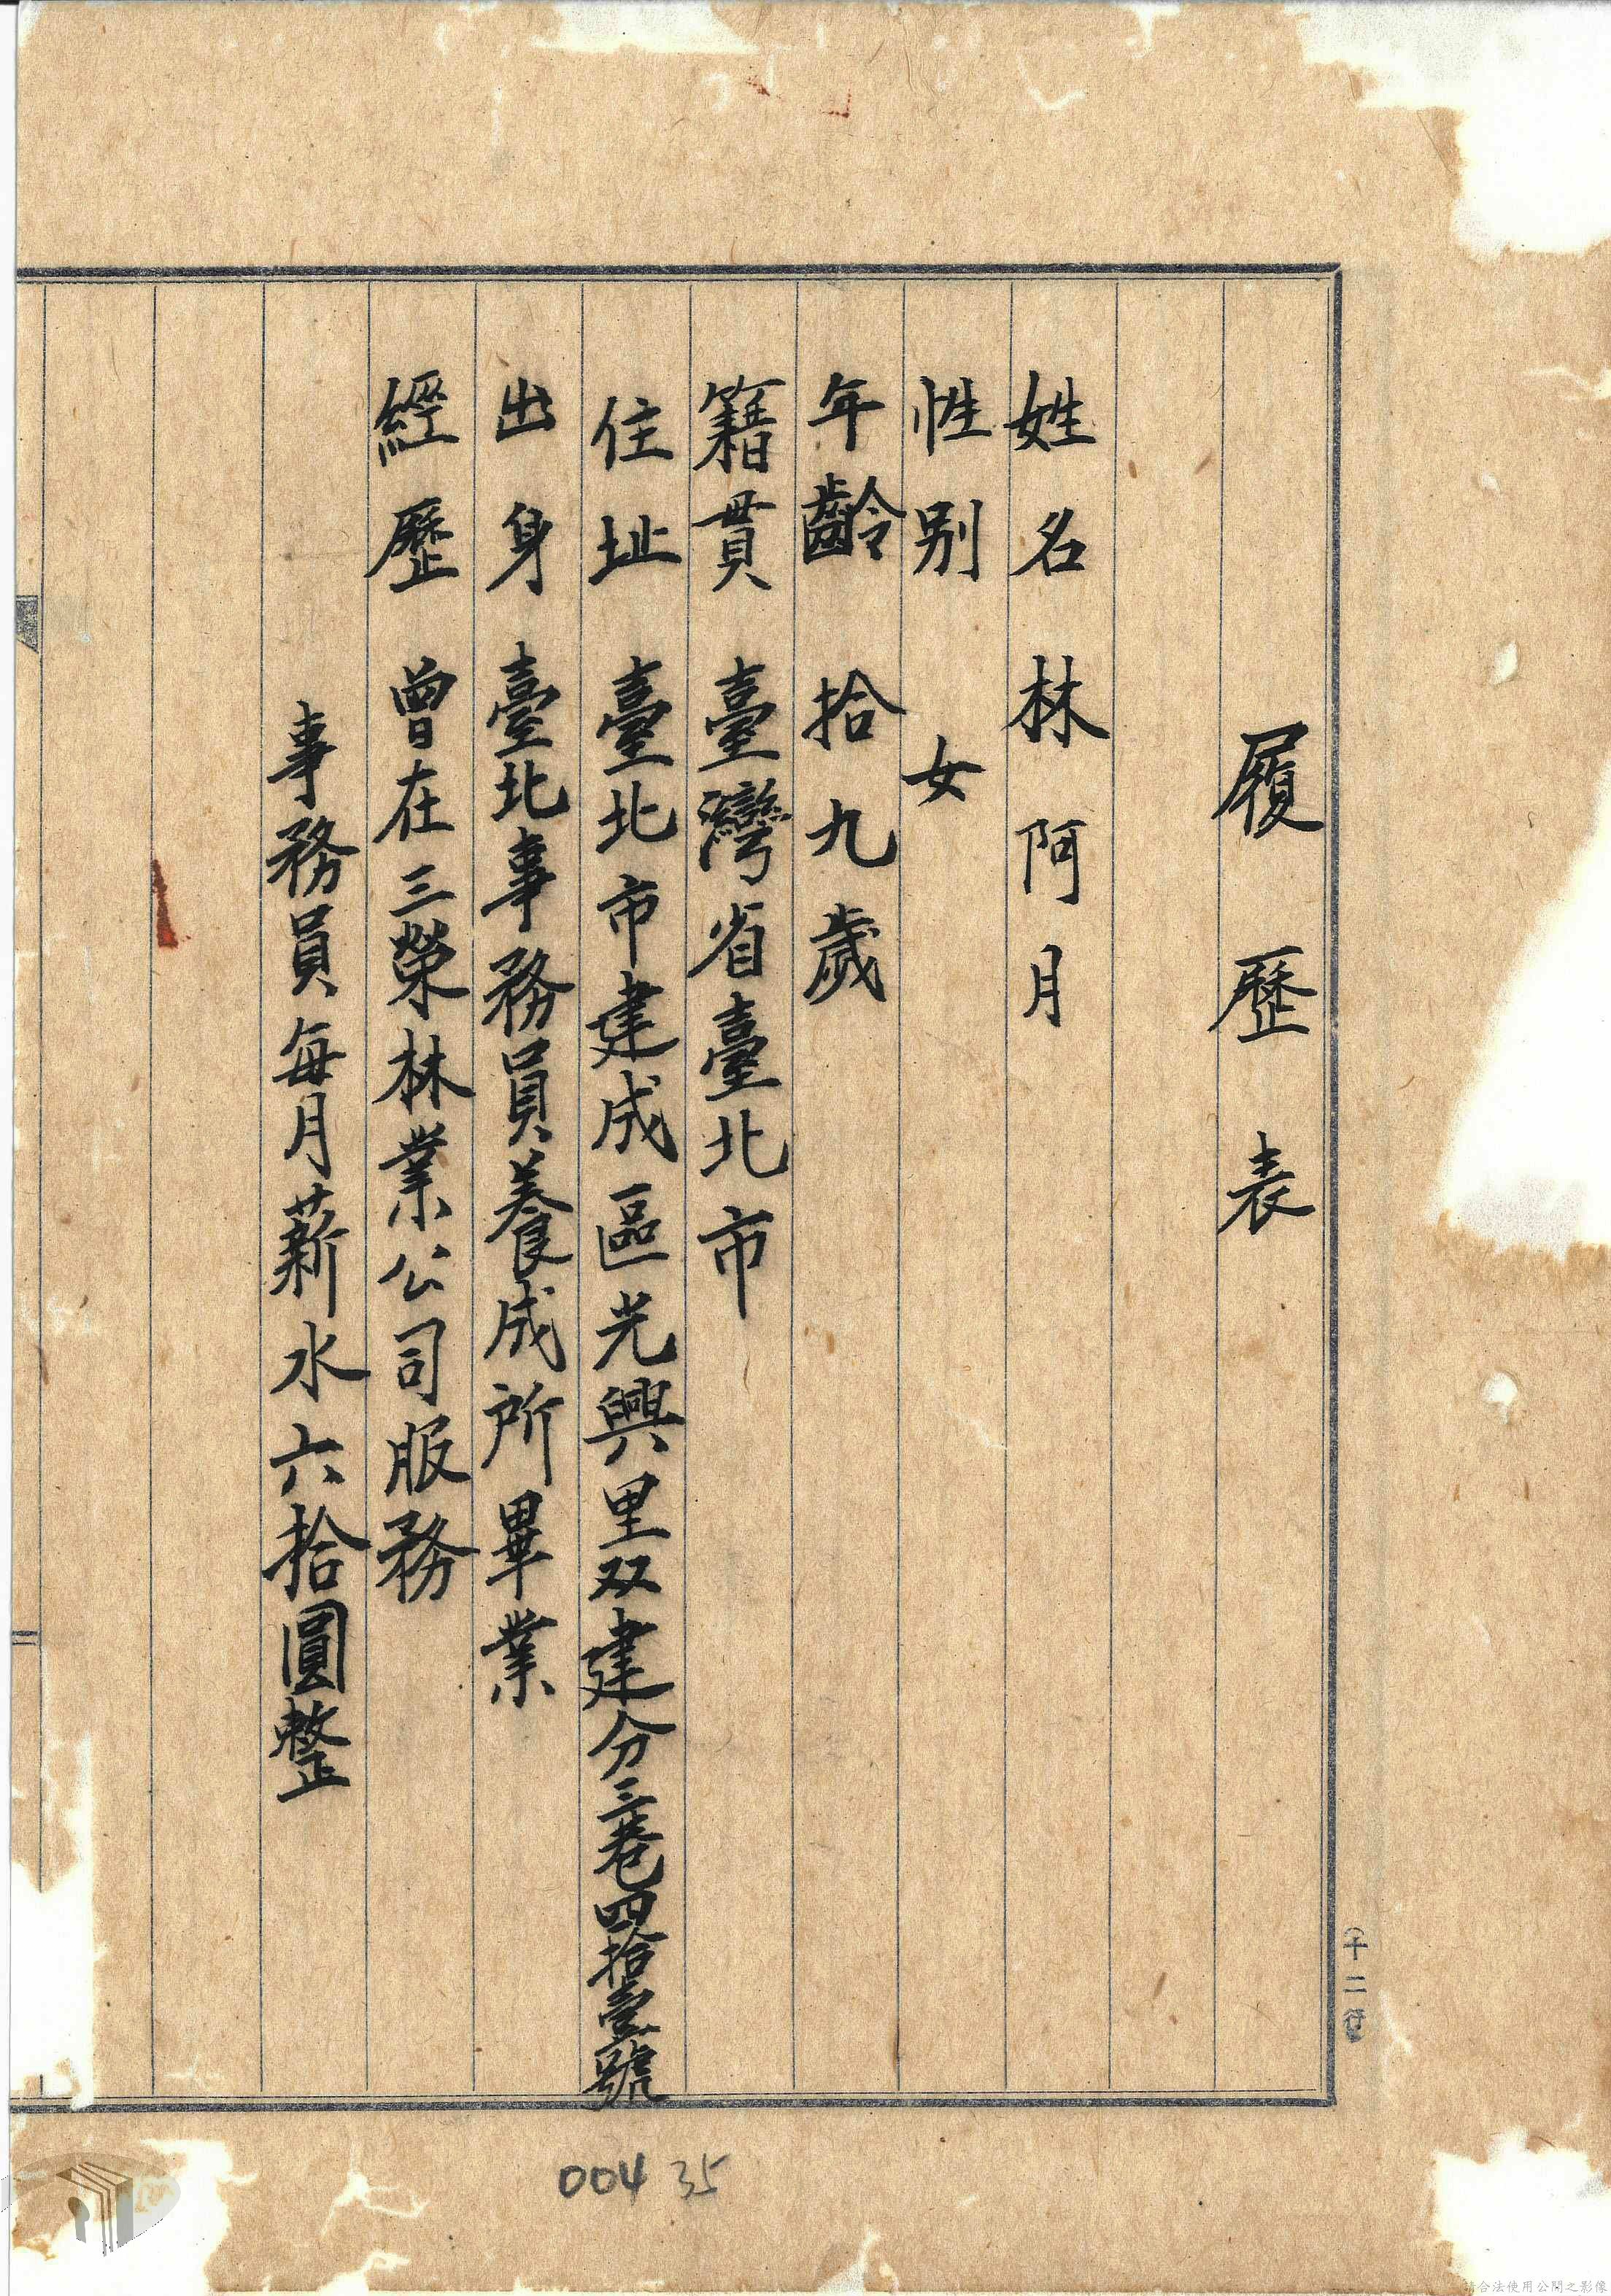 履歷表
姓名林阿月
性別女
年齡拾九歲
籍貫臺灣省臺北市
住址臺北市建成區光興里双建分三巷四拾壹號
出身臺北事務員養成所畢業
經歷曾在三榮林業公司服務
事務員每月薪水六拾圓整
(十二行
二
004 35
合法使用公開之影像